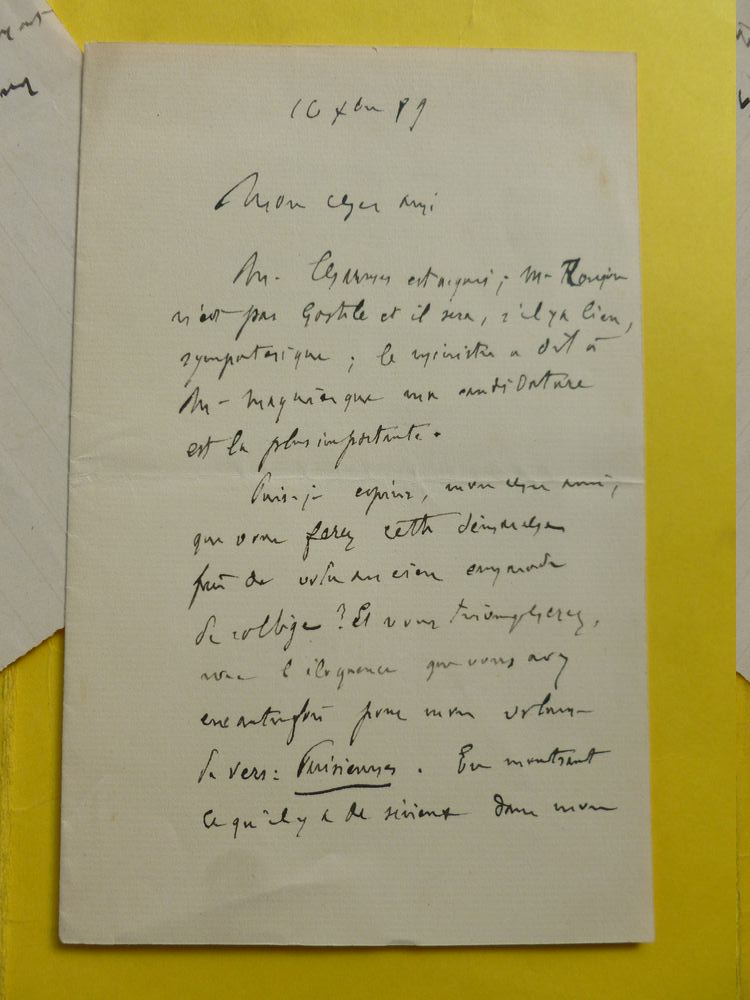 16 Xbre 89
Mon cher ami
M. Charmes est acquis ; M. Roujon
n'est pas hostile et il sera, s'il y a lieu,
sympathique ; le ministre a dit à
M. Magnier que ma candidature
est la plus importante.
Puis-je espérer, mon cher ami,
que vous ferez cette démarche
près de votre ancien camarade
de collège ? Et vous triompherez,
avec l'éloquence que vous avez
eue autrefois pour mon volume
de vers : Parisiennes. En montrant
ce qu'il y a de sérieux dans mon